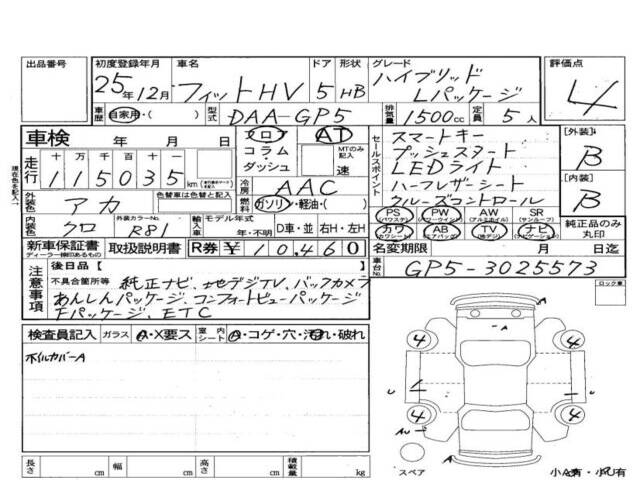 出品番号 初度登録年月 車名 ドア 形状 グレード 評価点
25年12月 フィットHV 5 HB ハイブリッド Lパッケージ 4
車歴 自家用・( ) 型式 DAA-GP5 排気量 1500cc 定員 5人
車検 年 月 日 フロ コラム ダッシュ AT MTのみ記入 速
走行 十万千百十一 115035 km
セールスポイント
スマートキー
プッシュスタート
LEDライト
ハーフレザーシート
クルーズコントロール
[外装] B
[内装] B
現在色を記入
外装色 アカ 色替車は色替と記入
冷房 AAC
燃料 ガソリン・軽油・( )
内装色 クロ 外装カラーNo. R81 輸入車 モデル年式 年・不明 D車・並 右H・左H
PS (パワステ) PW (パワーウインド) AW (アルミホイル) SR (サンルーフ)
カワ (カワシート) AB (エアバッグ) TV (地デジ) ナビ (ナビゲーション)
純正品のみ丸印
新車保証書 ディーラー捺印あるもの 取扱説明書 R券 ¥10,460 名変期限 月 日迄
車台No. GP5-3025573
注意事項 後日品 [ ]
不具合箇所等 純正ナビ、地デジTV、バックカメラ
あんしんパッケージ、コンフォートビューパッケージ
Fパッケージ、ETC
ロック車
検査員記入 ガラス A・X要ス 室内シート A・コゲ・穴・汚れ・破れ
ホイルカバーA
A
4 4
U U
4 4
AU
A
スペア
小A有・小U有
長さ cm 幅 cm 高さ cm 積載量 kg